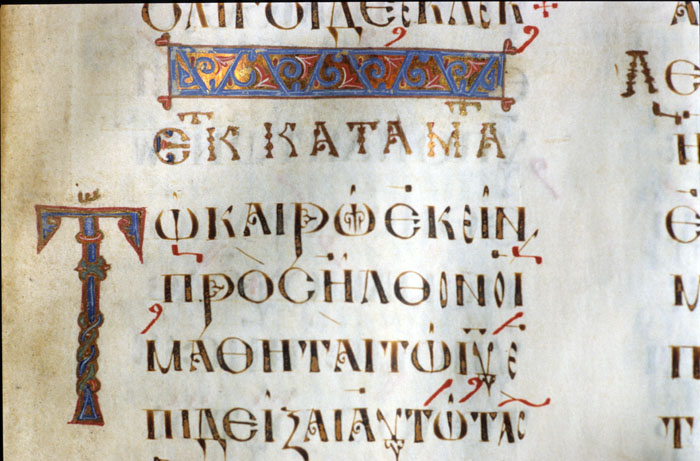 ΟΛΙΓΟΙ ΔΕ ΕΚΛΕΚ
ΕΚ Τ ΚΑΤΑ ΜΑΤ
ΤΩ ΚΑΙΡΩ ΕΚΕΙΝ
ΠΡΟΣΗΛΘΟΝ ΟΙ
ΜΑΘΗΤΑΙ ΤΩ ΙΥ Ε
ΠΙΔΕΙΞΑΙ ΑΥΤΩ ΤΑΣ